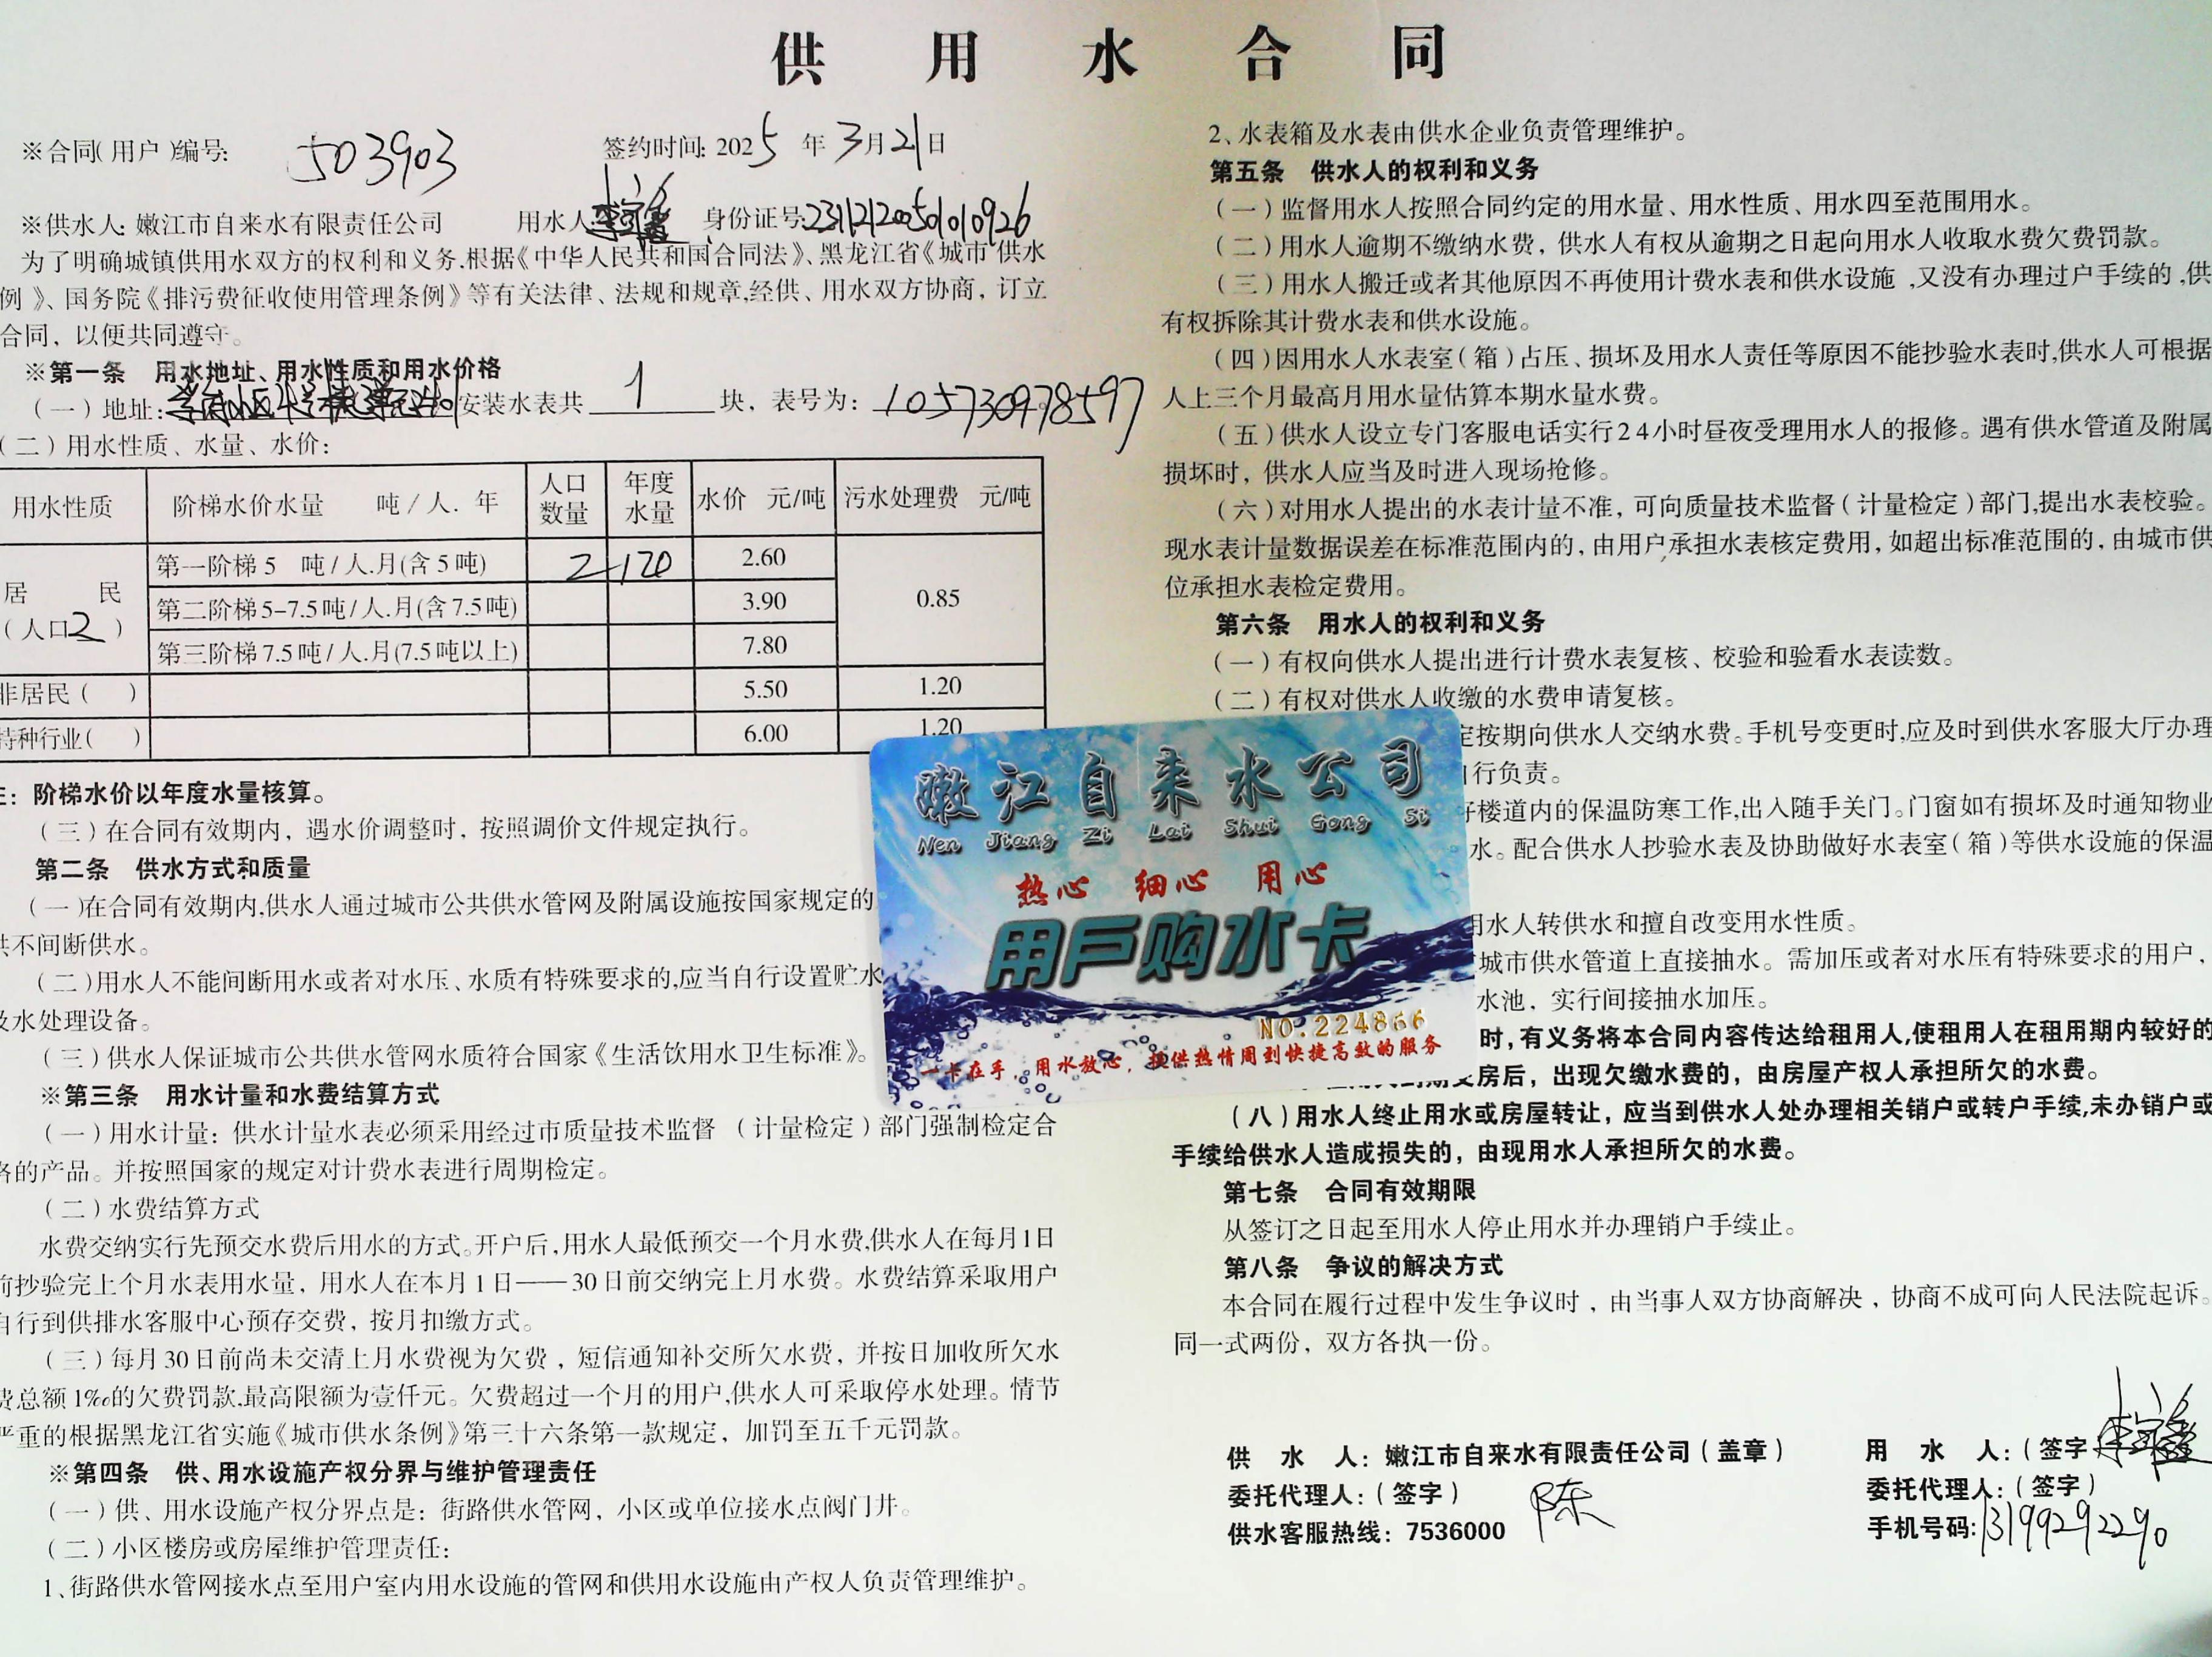 供用水合同
※合同(用户)编号: 503903 签约时间: 2025年3月21日
※供水人: 嫩江市自来水有限责任公司 用水人 李 鑫 身份证号: 231121200501010926
为了明确城镇供用水双方的权利和义务.根据《中华人民共和国合同法》、黑龙江省《城市供水
例》、国务院《排污费征收使用管理条例》等有关法律、法规和规章,经供、用水双方协商，订立
合同，以便共同遵守。
※第一条 用水地址、用水性质和用水价格
(一)地址: 安装水表共 1 块，表号为: 105730978597
(二)用水性质、水量、水价:
用水性质 阶梯水价水量 吨/人.年 人口数量 年度水量 水价 元/吨 污水处理费 元/吨
居民(人口2) 第一阶梯5 吨/人.月(含5吨) 2 120 2.60 0.85
第二阶梯5-7.5吨/人.月(含7.5吨) 3.90
第三阶梯7.5吨/人.月(7.5吨以上) 7.80
非居民( ) 5.50 1.20
特种行业( ) 6.00 1.20
注: 阶梯水价以年度水量核算。
(三)在合同有效期内，遇水价调整时，按照调价文件规定执行。
第二条 供水方式和质量
(一)在合同有效期内,供水人通过城市公共供水管网及附属设施按国家规定的
供不间断供水。
(二)用水人不能间断用水或者对水压、水质有特殊要求的,应当自行设置贮水
及水处理设备。
(三)供水人保证城市公共供水管网水质符合国家《生活饮用水卫生标准》。
※第三条 用水计量和水费结算方式
(一)用水计量: 供水计量水表必须采用经过市质量技术监督 (计量检定)部门强制检定合
格的产品。并按照国家的规定对计费水表进行周期检定。
(二)水费结算方式
水费交纳实行先预交水费后用水的方式。开户后,用水人最低预交一个月水费,供水人在每月1日
前抄验完上个月水表用水量，用水人在本月1日——30日前交纳完上月水费。水费结算采取用户
自行到供排水客服中心预存交费，按月扣缴方式。
(三)每月30日前尚未交清上月水费视为欠费，短信通知补交所欠水费，并按日加收所欠水
费总额1‰的欠费罚款,最高限额为壹仟元。欠费超过一个月的用户,供水人可采取停水处理。情节
严重的根据黑龙江省实施《城市供水条例》第三十六条第一款规定，加罚至五千元罚款。
※第四条 供、用水设施产权分界与维护管理责任
(一)供、用水设施产权分界点是: 街路供水管网，小区或单位接水点阀门井。
(二)小区楼房或房屋维护管理责任:
1、街路供水管网接水点至用户室内用水设施的管网和供用水设施由产权人负责管理维护。
2、水表箱及水表由供水企业负责管理维护。
第五条 供水人的权利和义务
(一)监督用水人按照合同约定的用水量、用水性质、用水四至范围用水。
(二)用水人逾期不缴纳水费，供水人有权从逾期之日起向用水人收取水费欠费罚款。
(三)用水人搬迁或者其他原因不再使用计费水表和供水设施,又没有办理过户手续的,供
有权拆除其计费水表和供水设施。
(四)因用水人水表室(箱)占压、损坏及用水人责任等原因不能抄验水表时,供水人可根据
人上三个月最高月用水量估算本期水量水费。
(五)供水人设立专门客服电话实行24小时昼夜受理用水人的报修。遇有供水管道及附属
损坏时，供水人应当及时进入现场抢修。
(六)对用水人提出的水表计量不准，可向质量技术监督(计量检定)部门,提出水表校验。
现水表计量数据误差在标准范围内的，由用户承担水表核定费用，如超出标准范围的，由城市供
位承担水表检定费用。
第六条 用水人的权利和义务
(一)有权向供水人提出进行计费水表复核、校验和验看水表读数。
(二)有权对供水人收缴的水费申请复核。
定按期向供水人交纳水费。手机号变更时,应及时到供水客服大厅办理
自行负责。
好楼道内的保温防寒工作,出入随手关门。门窗如有损坏及时通知物业
水。配合供水人抄验水表及协助做好水表室(箱)等供水设施的保温
用水人转供水和擅自改变用水性质。
城市供水管道上直接抽水。需加压或者对水压有特殊要求的用户，
水池，实行间接抽水加压。
时,有义务将本合同内容传达给租用人,使租用人在租用期内较好的
房后，出现欠缴水费的，由房屋产权人承担所欠的水费。
(八)用水人终止用水或房屋转让，应当到供水人处办理相关销户或转户手续,未办销户或
手续给供水人造成损失的，由现用水人承担所欠的水费。
第七条 合同有效期限
从签订之日起至用水人停止用水并办理销户手续止。
第八条 争议的解决方式
本合同在履行过程中发生争议时，由当事人双方协商解决，协商不成可向人民法院起诉。
同一式两份，双方各执一份。
供水人: 嫩江市自来水有限责任公司(盖章) 用水人:(签字 李 鑫
委托代理人:(签字) 陈 委托代理人:(签字)
供水客服热线: 7536000 手机号码: 13199292290
嫩江自来水公司
Nen Jiang Zi Lai Shui Gong Si
热心 细心 用心
用户购水卡
NO.224866
一卡在手，用水放心，提供热情周到快捷高效的服务